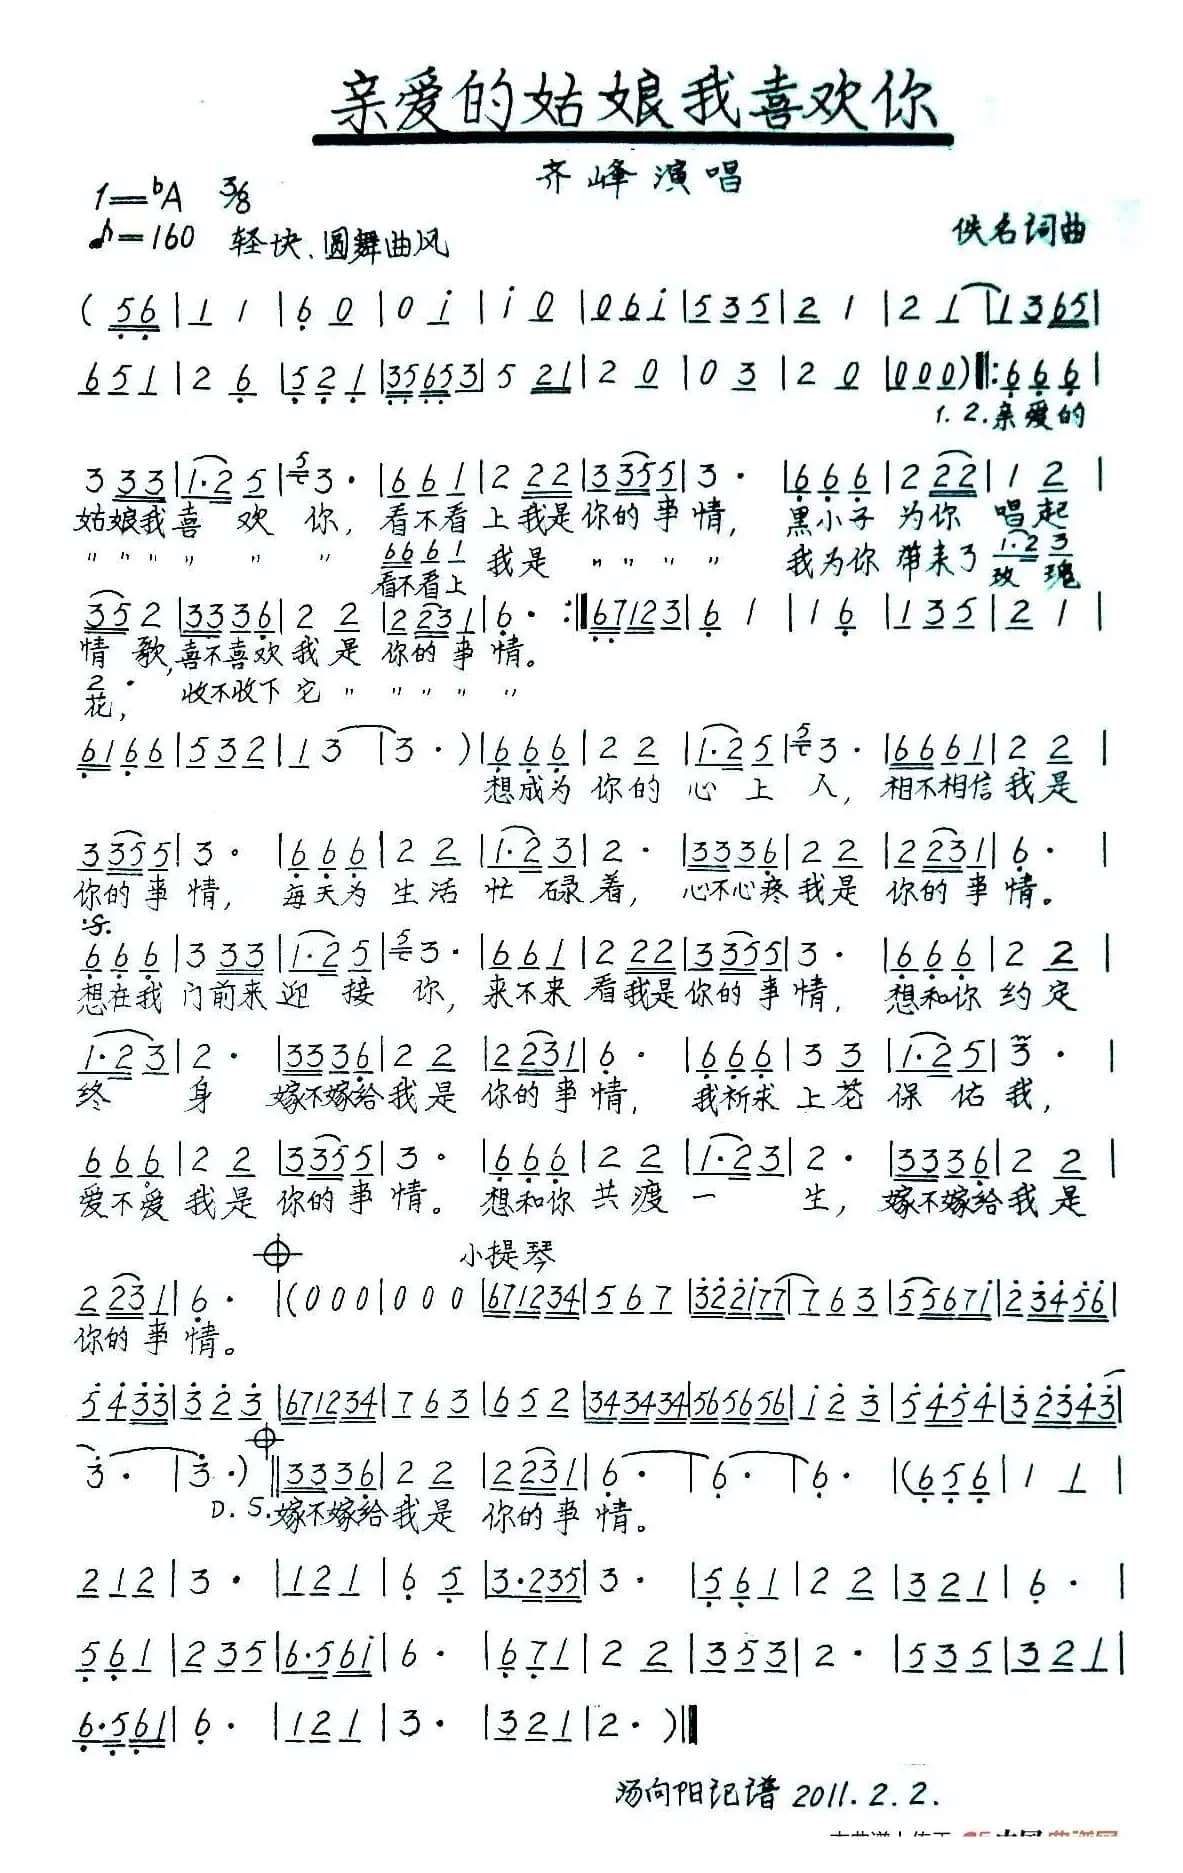 亲爱的姑娘我喜欢你
齐峰演唱
1=♭A 3/8
♪=160 轻快、圆舞曲风 佚名词曲
( 5 6 | 1 1 | 6 0 | 0 i | i 0 | 0 6 i | 5 3 5 | 2 1 | 2 1 | 1 3 6 5 |
6 5 1 | 2 6 | 5 2 1 | 3 5 6 5 3 | 5 2 1 | 2 0 | 0 3 | 2 0 | 0 0 0 ) ‖: 6 6 6 |
1. 2. 亲爱的
3 3 3 | 1·2 5 | 5 3· | 6 6 1 | 2 2 2 | 3 3 5 5 | 3· | 6 6 6 | 2 2 2 | 1 2 |
姑娘我喜欢你,看不看上我是你的事情,黑小子为你唱起
〃 〃 〃 〃 〃 〃 6 6 6 1 我是 〃 〃 〃 〃 我为你带来了 1·2 3
看不看上 玫瑰
3 5 2 | 3 3 3 6 | 2 2 | 2 2 3 1 | 6· :‖ 6 7 1 2 3 | 6 1 | 1 6 | 1 3 5 | 2 1 |
情歌,喜不喜欢我是你的事情。
2·
花, 收不收下它 〃 〃 〃 〃 〃
6 1 6 6 | 5 3 2 | 1 3 | 3· ) | 6 6 6 | 2 2 | 1·2 5 | 5 3· | 6 6 6 1 | 2 2 |
想成为你的心上人,相不相信我是
3 3 5 5 | 3· | 6 6 6 | 2 2 | 1·2 3 | 2· | 3 3 3 6 | 2 2 | 2 2 3 1 | 6· |
你的事情,每天为生活忙碌着,心不心疼我是你的事情。
:S:
6 6 6 | 3 3 3 | 1·2 5 | 5 3· | 6 6 1 | 2 2 2 | 3 3 5 5 | 3· | 6 6 6 | 2 2 |
想在我门前来迎接你,来不来看我是你的事情,想和你约定
1·2 3 | 2· | 3 3 3 6 | 2 2 | 2 2 3 1 | 6· | 6 6 6 | 3 3 | 1·2 5 | 3· |
终身嫁不嫁给我是你的事情,我祈求上苍保佑我,
6 6 6 | 2 2 | 3 3 5 5 | 3· | 6 6 6 | 2 2 | 1·2 3 | 2· | 3 3 3 6 | 2 2 |
爱不爱我是你的事情。想和你共渡一生,嫁不嫁给我是
小提琴
2 2 3 1 | 6· | ( 0 0 0 | 0 0 0 | 6 7 1 2 3 4 | 5 6 7 | 3 2 2 1 7 7 | 7 6 3 | 5 5 6 7 i | 2 3 4 5 6 |
你的事情。
5 4 3 3 | 3 2 3 | 6 7 1 2 3 4 | 7 6 3 | 6 5 2 | 3 4 3 4 3 4 | 5 6 5 6 5 6 | i 2 3 | 5 4 5 4 | 3 2 3 4 3 |
3· | 3· ) ‖ 3 3 3 6 | 2 2 | 2 2 3 1 | 6· | 6· | 6· | ( 6 5 6 | 1 1 |
D.S. 嫁不嫁给我是你的事情。
2 1 2 | 3· | 1 2 1 | 6 5 | 3·2 3 5 | 3· | 5 6 1 | 2 2 | 3 2 1 | 6· |
5 6 1 | 2 3 5 | 6·5 6 i | 6· | 6 7 1 | 2 2 | 3 5 3 | 2· | 5 3 5 | 3 2 1 |
6·5 6 1 | 6· | 1 2 1 | 3· | 3 2 1 | 2· ) ‖
汤向阳记谱 2011.2.2.